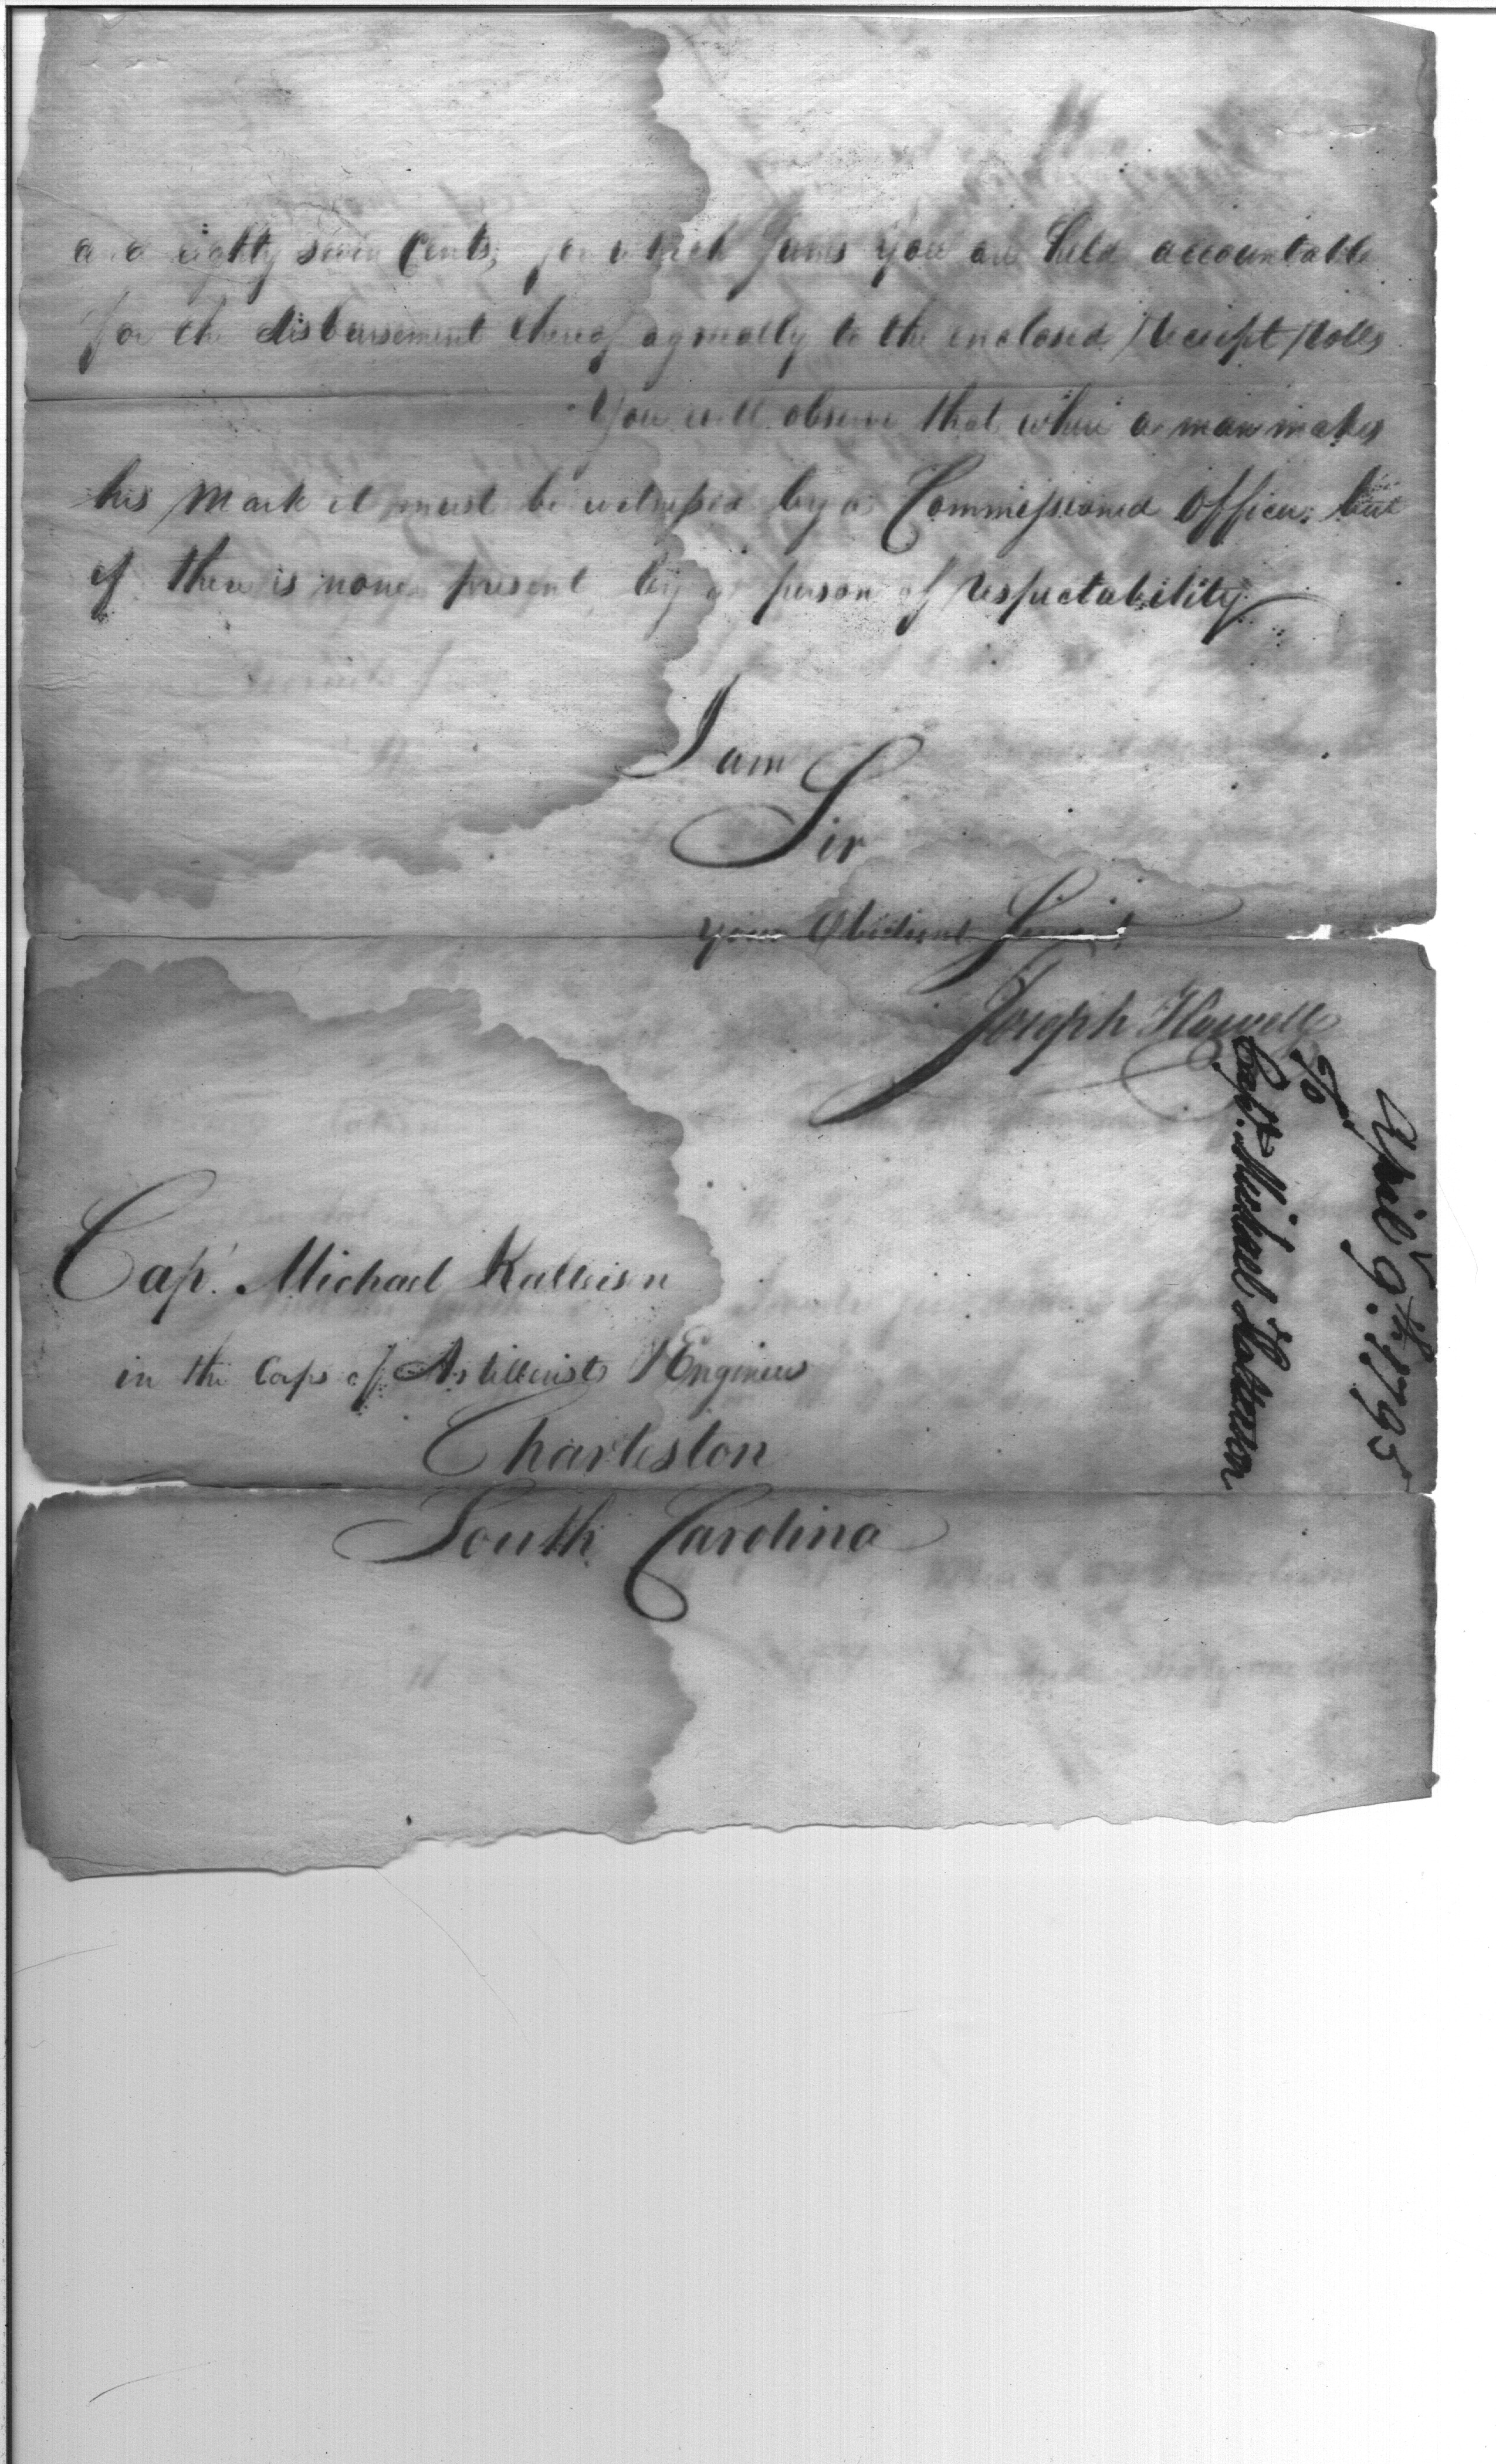 and eighty seven Cents, for which sums you are held accountable
for the disbursement thereof agreeably to the enclosed Receipt Rolls
You will observe that where a man makes
his Mark it must be witnessed by a Commissioned Officer, but
if there is none present by a person of respectability
I am
Sir
your Obedient Servant
Joseph Howell
Cap.t Michael Kalteisen
in the Corps of Artillerists & Engineers
Charleston
South Carolina
April 9.th 1795
To
Capt. Michael Kalteisen